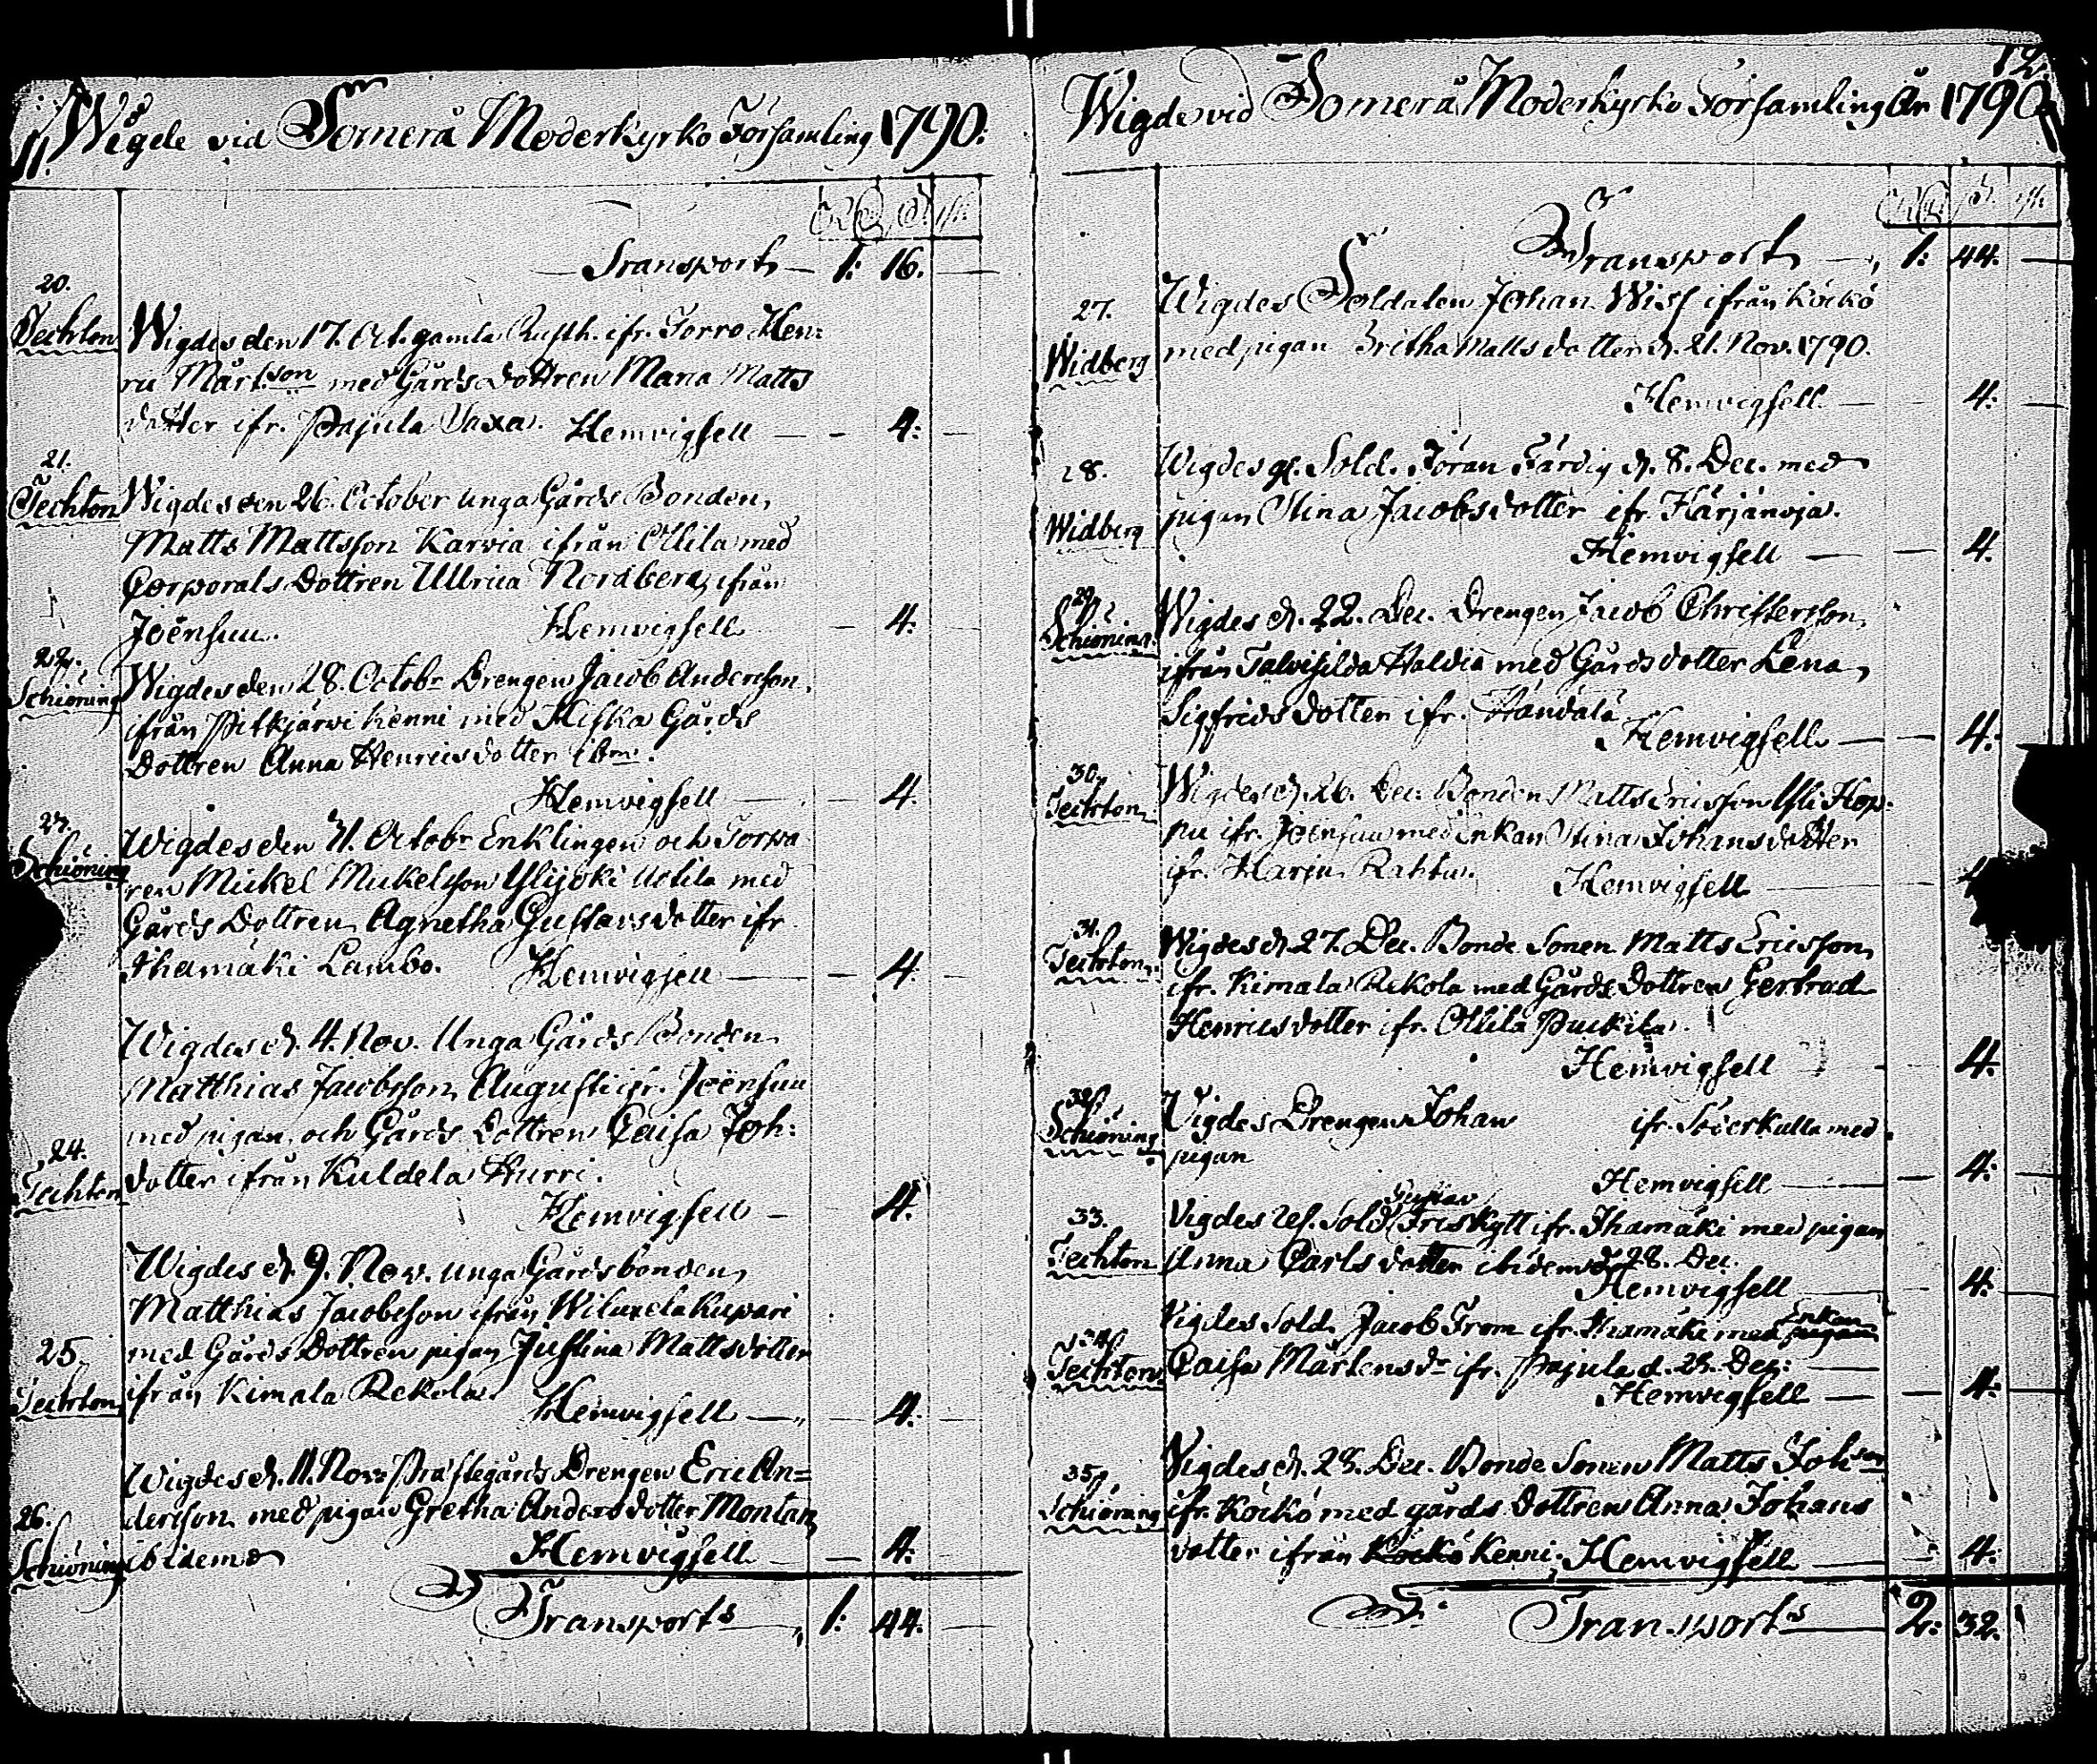 11. Wigde vid Somerå Moderkyrko Församling 1790.
Transport 1: 16.
20.
Techton
Wigdes den 17. Oct. gamla Rusth. ifr. Torro Hen:
ric Mårt.son med Gårds Dottren Maria Matts
dotter ifr. Pajula Uaxa. Hemvigsell 4:
21.
Techton
Wigdes den 26. October unga Gårds Bonden
Matts Mattsson Karvia ifrån Ollila med
Corporals Dottren Ullrica Nordberg ifrån
Joensuu. Hemvigsell 4.
22.
Schiöning
Wigdes den 28. Octobr Drengen Jacob Andersson
ifrån Pitkjärvi Kenni med Hiska Gårds
Dottren Anna Henricsdotter ibm.
Hemvigsell 4.
23.
Schiöning
Wigdes den 31. Octobr Enklingen och Torpa
ren Mickel Mickelsson Ylijoki Uotila med
Gårds Dottren Agnetha Gustavsdotter ifr.
Ihamäki Lambo. Hemvigsell 4.
Wigdes d. 4. Nov. Unga Gårds Bonden
Matthias Jacobsson Augusti ifr. Joensuu
24.
Techton
med pigan och Gårds Dottren Caisa Joh:
dotter ifrån Kuldela Hurri.
Hemvigsell 4.
Wigdes d. 9. Nov. unga Gårdsbonden
Matthias Jacobsson ifrån Wiluxela Kupari
25.
Techton
med Gårds Dottren pigan Justina Mattsdotter
ifrån Kimala Rekola. Hemvigsell 4.
Wigdes d. 11. Nov. Prästegårds Drengen Eric An=
26.
Schiöning
dersson med pigan Gretha Andersdotter Montan
ibidem Hemvigsell 4.
Transport 1: 44.
12.
Wigde vid Somerå Moderkyrko Församling År 1790
Transport 1: 44.
27.
Widberg
Wigdes Soldaten Johan Wisf ifrån Köckö
med pigan Britha Mattsdotter d. 21. Nov. 1790.
Hemvigsell 4.
28.
Widberg
Wigdes gl. Sold. Jöran Färdig d. 8. Dec. med
pigan Stina Jacobsdotter ifr. Härjänoja.
Hemvigsell 4.
29.
Schiöning
Wigdes d. 22. Dec. Drengen Jacob Christersson
ifrån Talvisilda Haldia med Gårdsdotter Lena
Sigfredsdotter ifr. Händälä
Hemvigsell 4.
30.
Techton
Wigdes d. 26. Dec. Bonden Matts Ericsson Yli Hop:
pu ifr. Joensuu med Enkan Stina Johansdotter
ifr. Harju Rahtu. Hemvigsell
31.
Techton
Wigdes d. 27. Dec. Bonde Sonen Matts Ericsson
ifr. Kimala Rekola med Gårds Dottren Gertrud
Henricsdotter ifr. Ollila Puckila.
Hemvigsell 4.
32.
Schiöning
Vigdes Drengen Johan ifr. Söderkulla med
pigan
Hemvigsell 4.
33.
Techton
Gustav
Vigdes Res. Sold. Friskytt ifr. Ihamäki med pigan
Anna Carlsdotter ibidem d. 28. Dec.
Hemvigsell 4.
34.
Techton
Enkan
Vigdes Sold. Jacob From ifr. Ihamäki med pigan
Caisa Mårtensdr ifr. Pajula d. 28. Dec:
Hemvigsell 4.
35.
Schiöning
Vigdes d. 28. Dec. Bonde Sonen Matts Johson
ifr. Köckö med gårds Dottren Anna Johans
dotter ifrån Köckö Kenni. Hemvigsell 4.
Transport 2: 32.